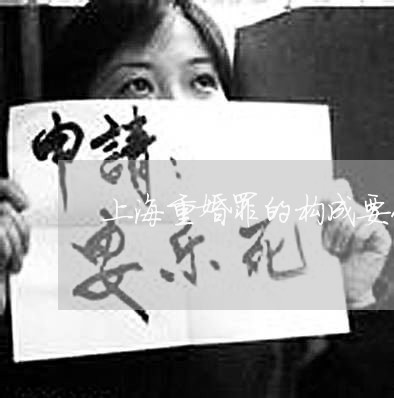 申請：
上海重婚罪的构成要
安乐死